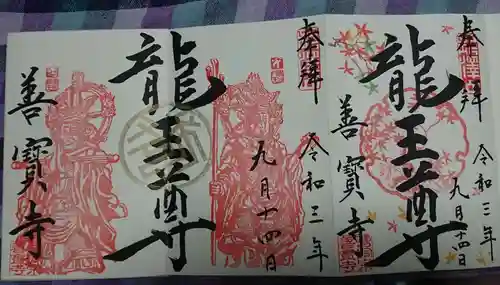 奉拝
龍王尊
令和三年
九月十四日
善寳寺
奉拝
龍王尊
令和三年
九月十四日
善寳寺